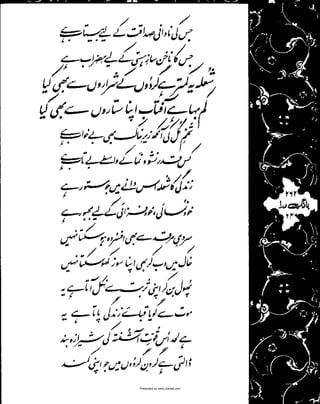 جس کی نادانی صداقت کے لیے بیتاب ہے
جس کا ناخن سازِ ہستی کے لیے مضراب ہے
شعلہ یہ کمتر ہے گردوں کے شراروں سے بھی کیا
کم بہا ہے آفتاب اپنا ستاروں سے بھی کیا
تخمِ گل کی آنکھ زیرِ خاک بھی بے خواب ہے
کس قدر نشوونما کے واسطے بے تاب ہے
زندگی کا شعلہ اس دانے میں جو مستور ہے
خود نمائی، خود فزائی کے لیے مجبور ہے
سردیِ مرقد سے بھی افسردہ ہو سکتا نہیں
خاک میں دب کر بھی اپنا سوز کھو سکتا نہیں
پھول بن کر اپنی تربت سے نکل آتا ہے یہ
موت سے گویا قبائے زندگی پاتا ہے یہ
ہے لحد اس قوتِ آشفتہ کی شیرازہ بند
ڈالتی ہے گردنِ گردوں میں جو اپنی کمند
بانگِ درا